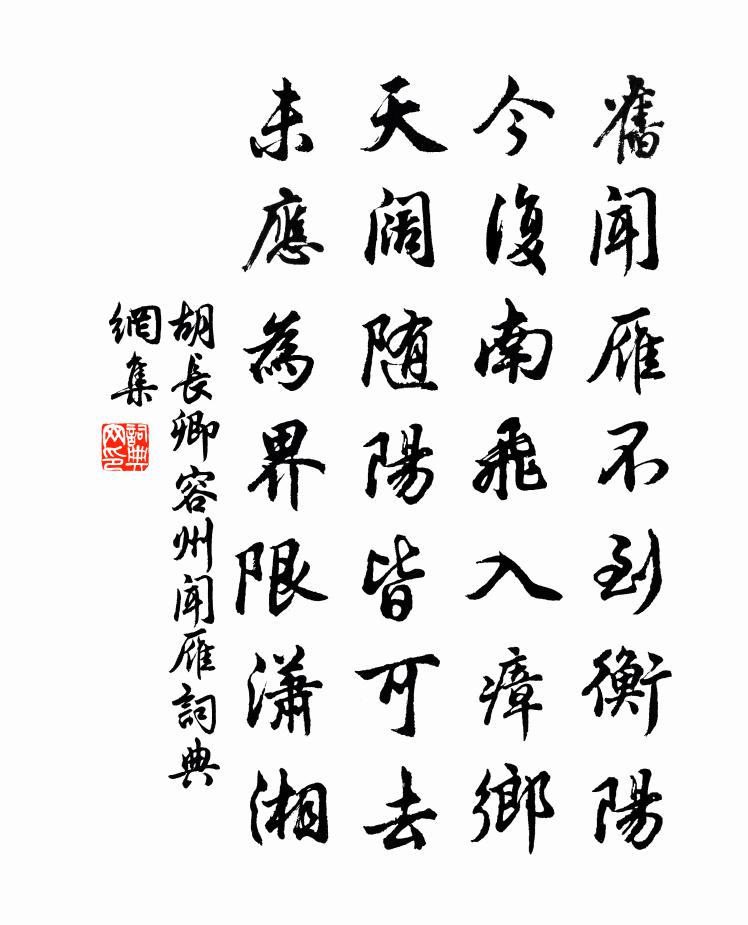 舊聞雁不到衡陽
今復南飛入瘴鄉
天闊随陽皆可去
未應為界限瀟湘
胡長卿容州聞雁詞典
網集
詞典
网印